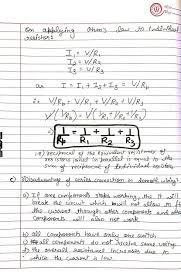 on applying ohm's law to individual
resistors:
I₁ = V/R₁
I₂ = V/R₂
I₃ = V/R₃
as I = I₁ + I₂ + I₃ = V/Rp
∴ V/Rp = V/R₁ + V/R₂ + V/R₃
V(1/Rp) = V(1/R₁ + 1/R₂ + 1/R₃)
1/Rp = 1/R₁ + 1/R₂ + 1/R₃
reciprocal of the equivalent resistance of
resistors joined in parallel is equal to the
sum of reciprocal of individual resistors
Disadvantage of series connection in domestic wiring
a) If one component stops working, the it will
break the circuit which will not allow to
the current through other components and
components will also not work
b) all components have only one switch
c) all component do not same
d) the overall resistance increases due to
which the current is low